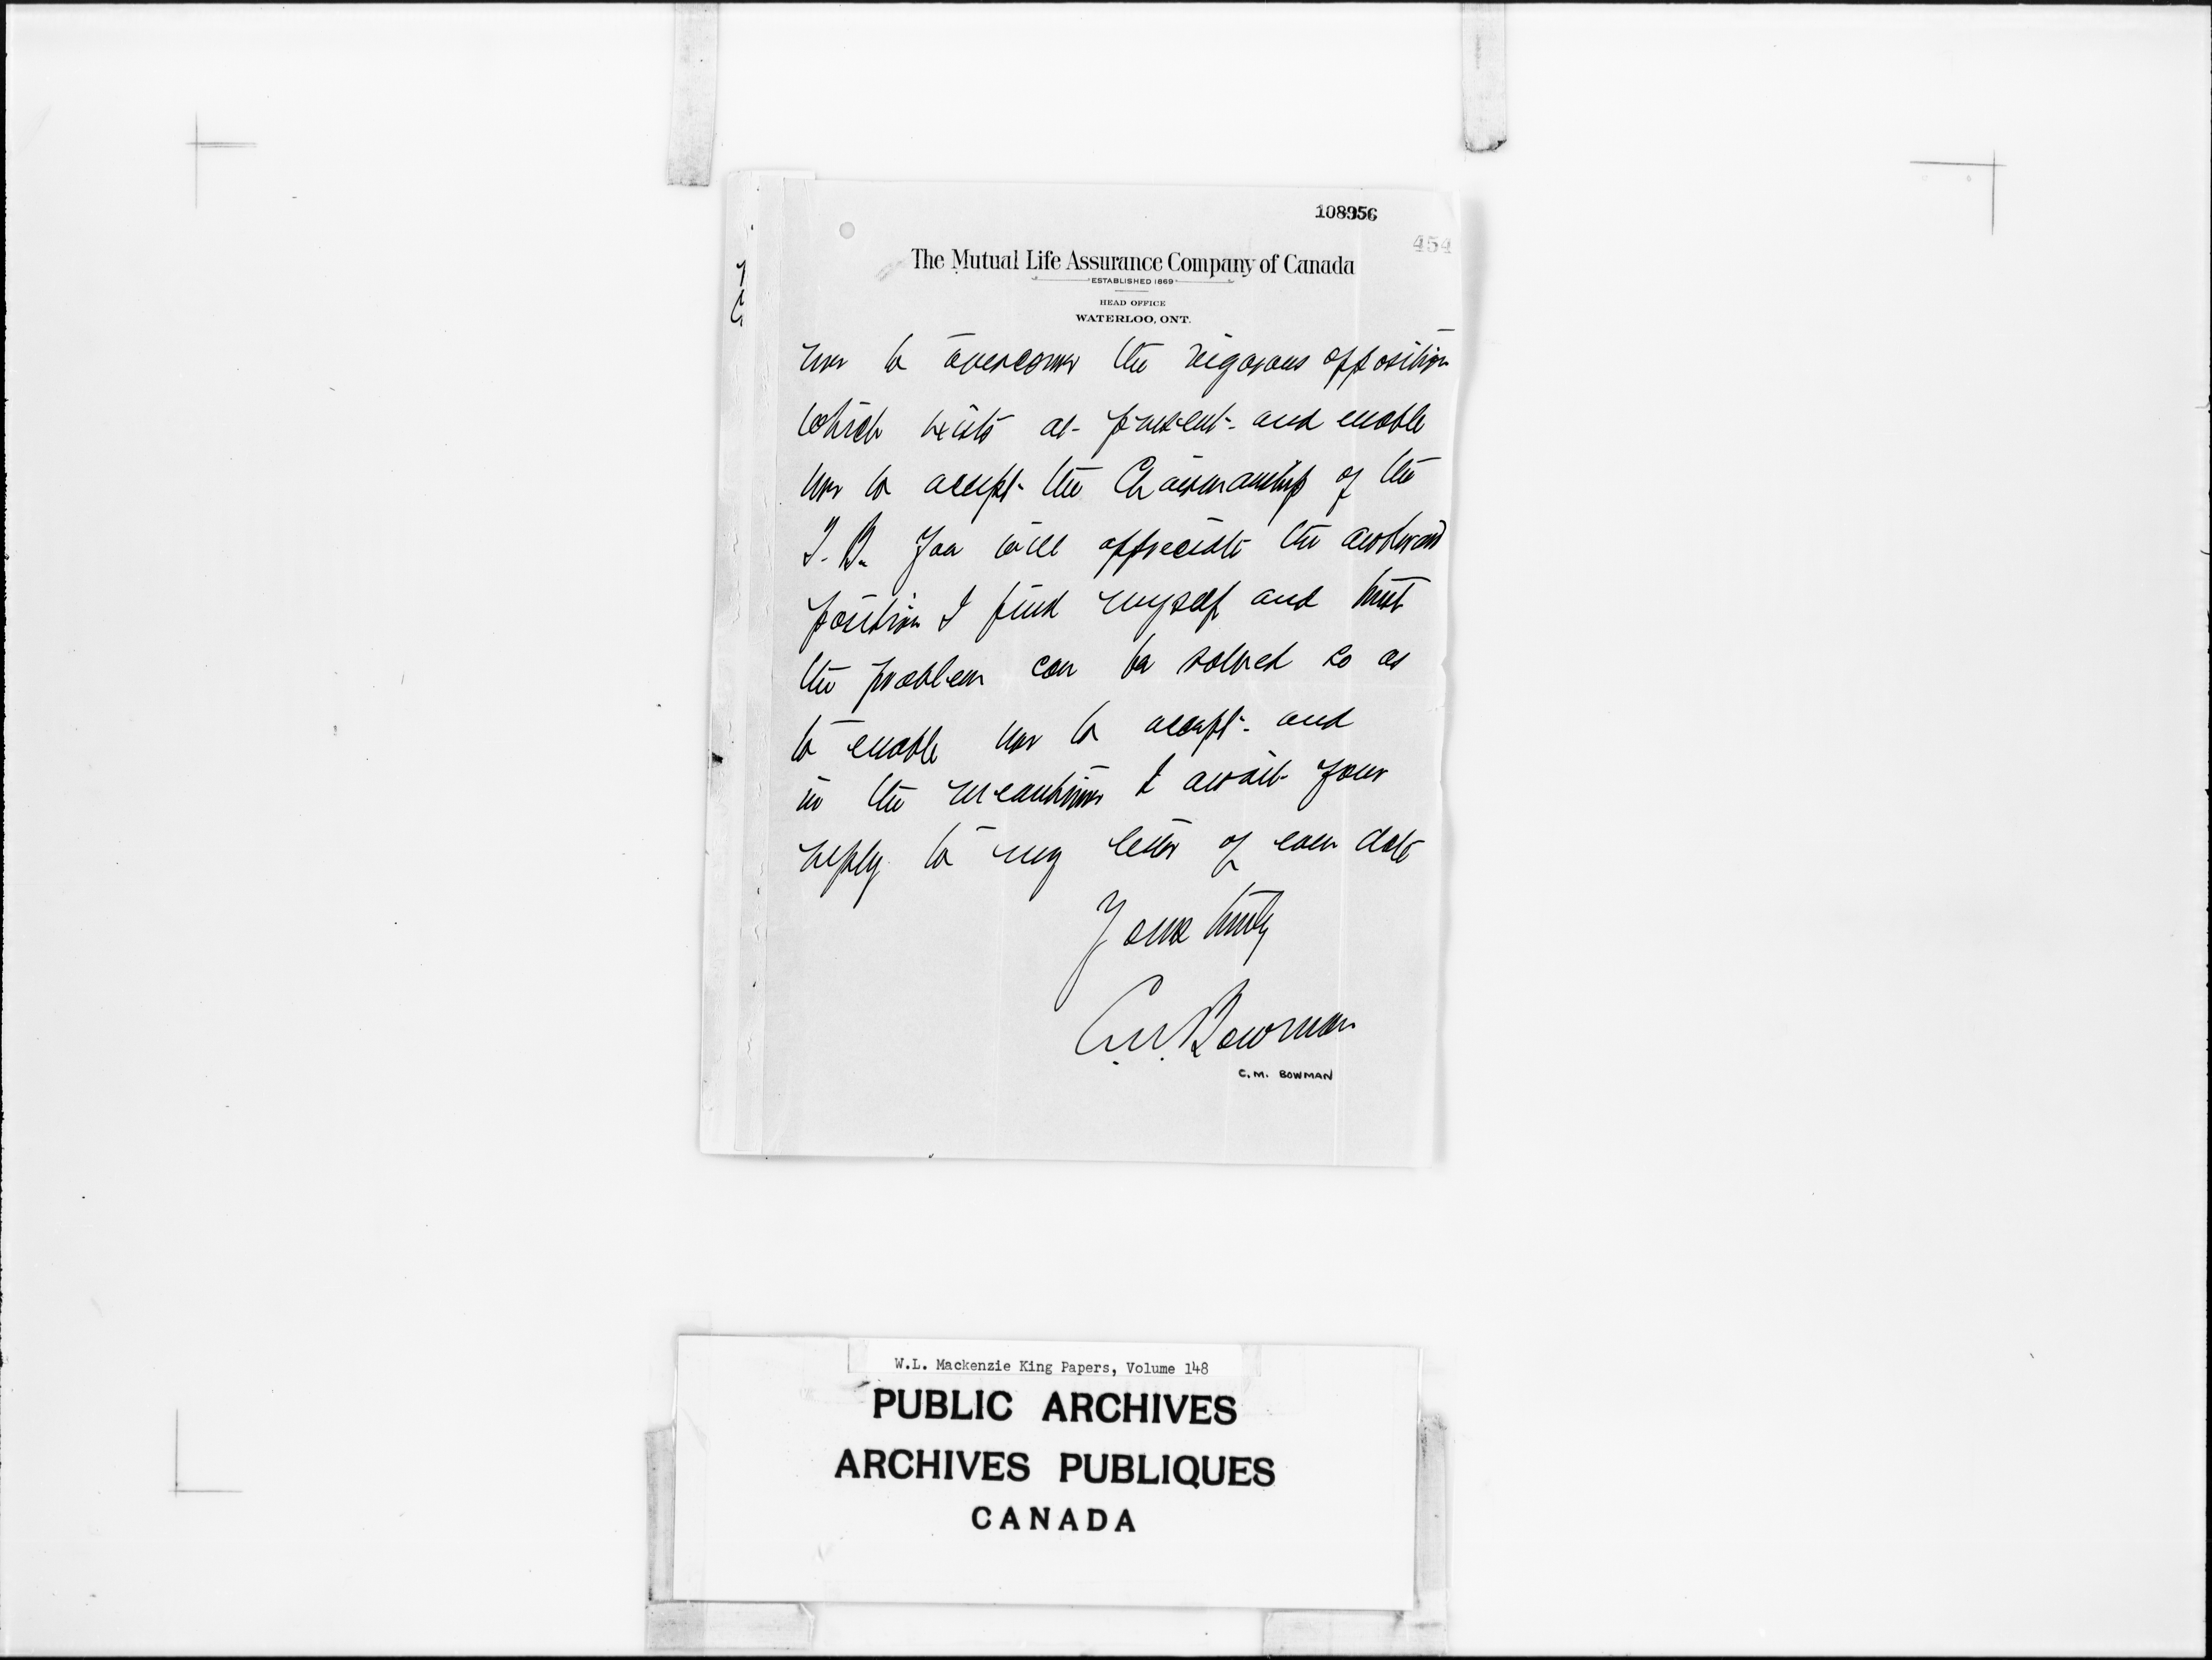 108956
454
The Mutual Life Assurance Company of Canada
ESTABLISHED 1869
HEAD OFFICE
WATERLOO, ONT.
me to overcome the vigorous opposition
which exists at present and enable
me to accept the Chairmanship of the
T. B. You will appreciate the awkward
position I find myself and trust
the problem can be solved so as
to enable me to accept and
in the meantime I await your
reply to my letter of even date
Yours truly
C.M. Bowman
C.M. BOWMAN
W.L. Mackenzie King Papers, Volume 148
PUBLIC ARCHIVES
ARCHIVES PUBLIQUES
CANADA